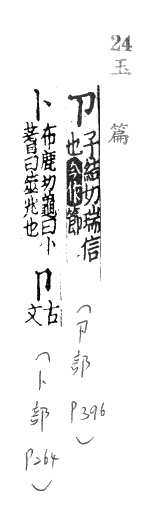 24
玉篇
卩 子結切瑞信也今作節
(卩部 P396)
卜 布鹿切龜曰卜蓍曰筮兆也 𠁡 古文
(卜部 P264)